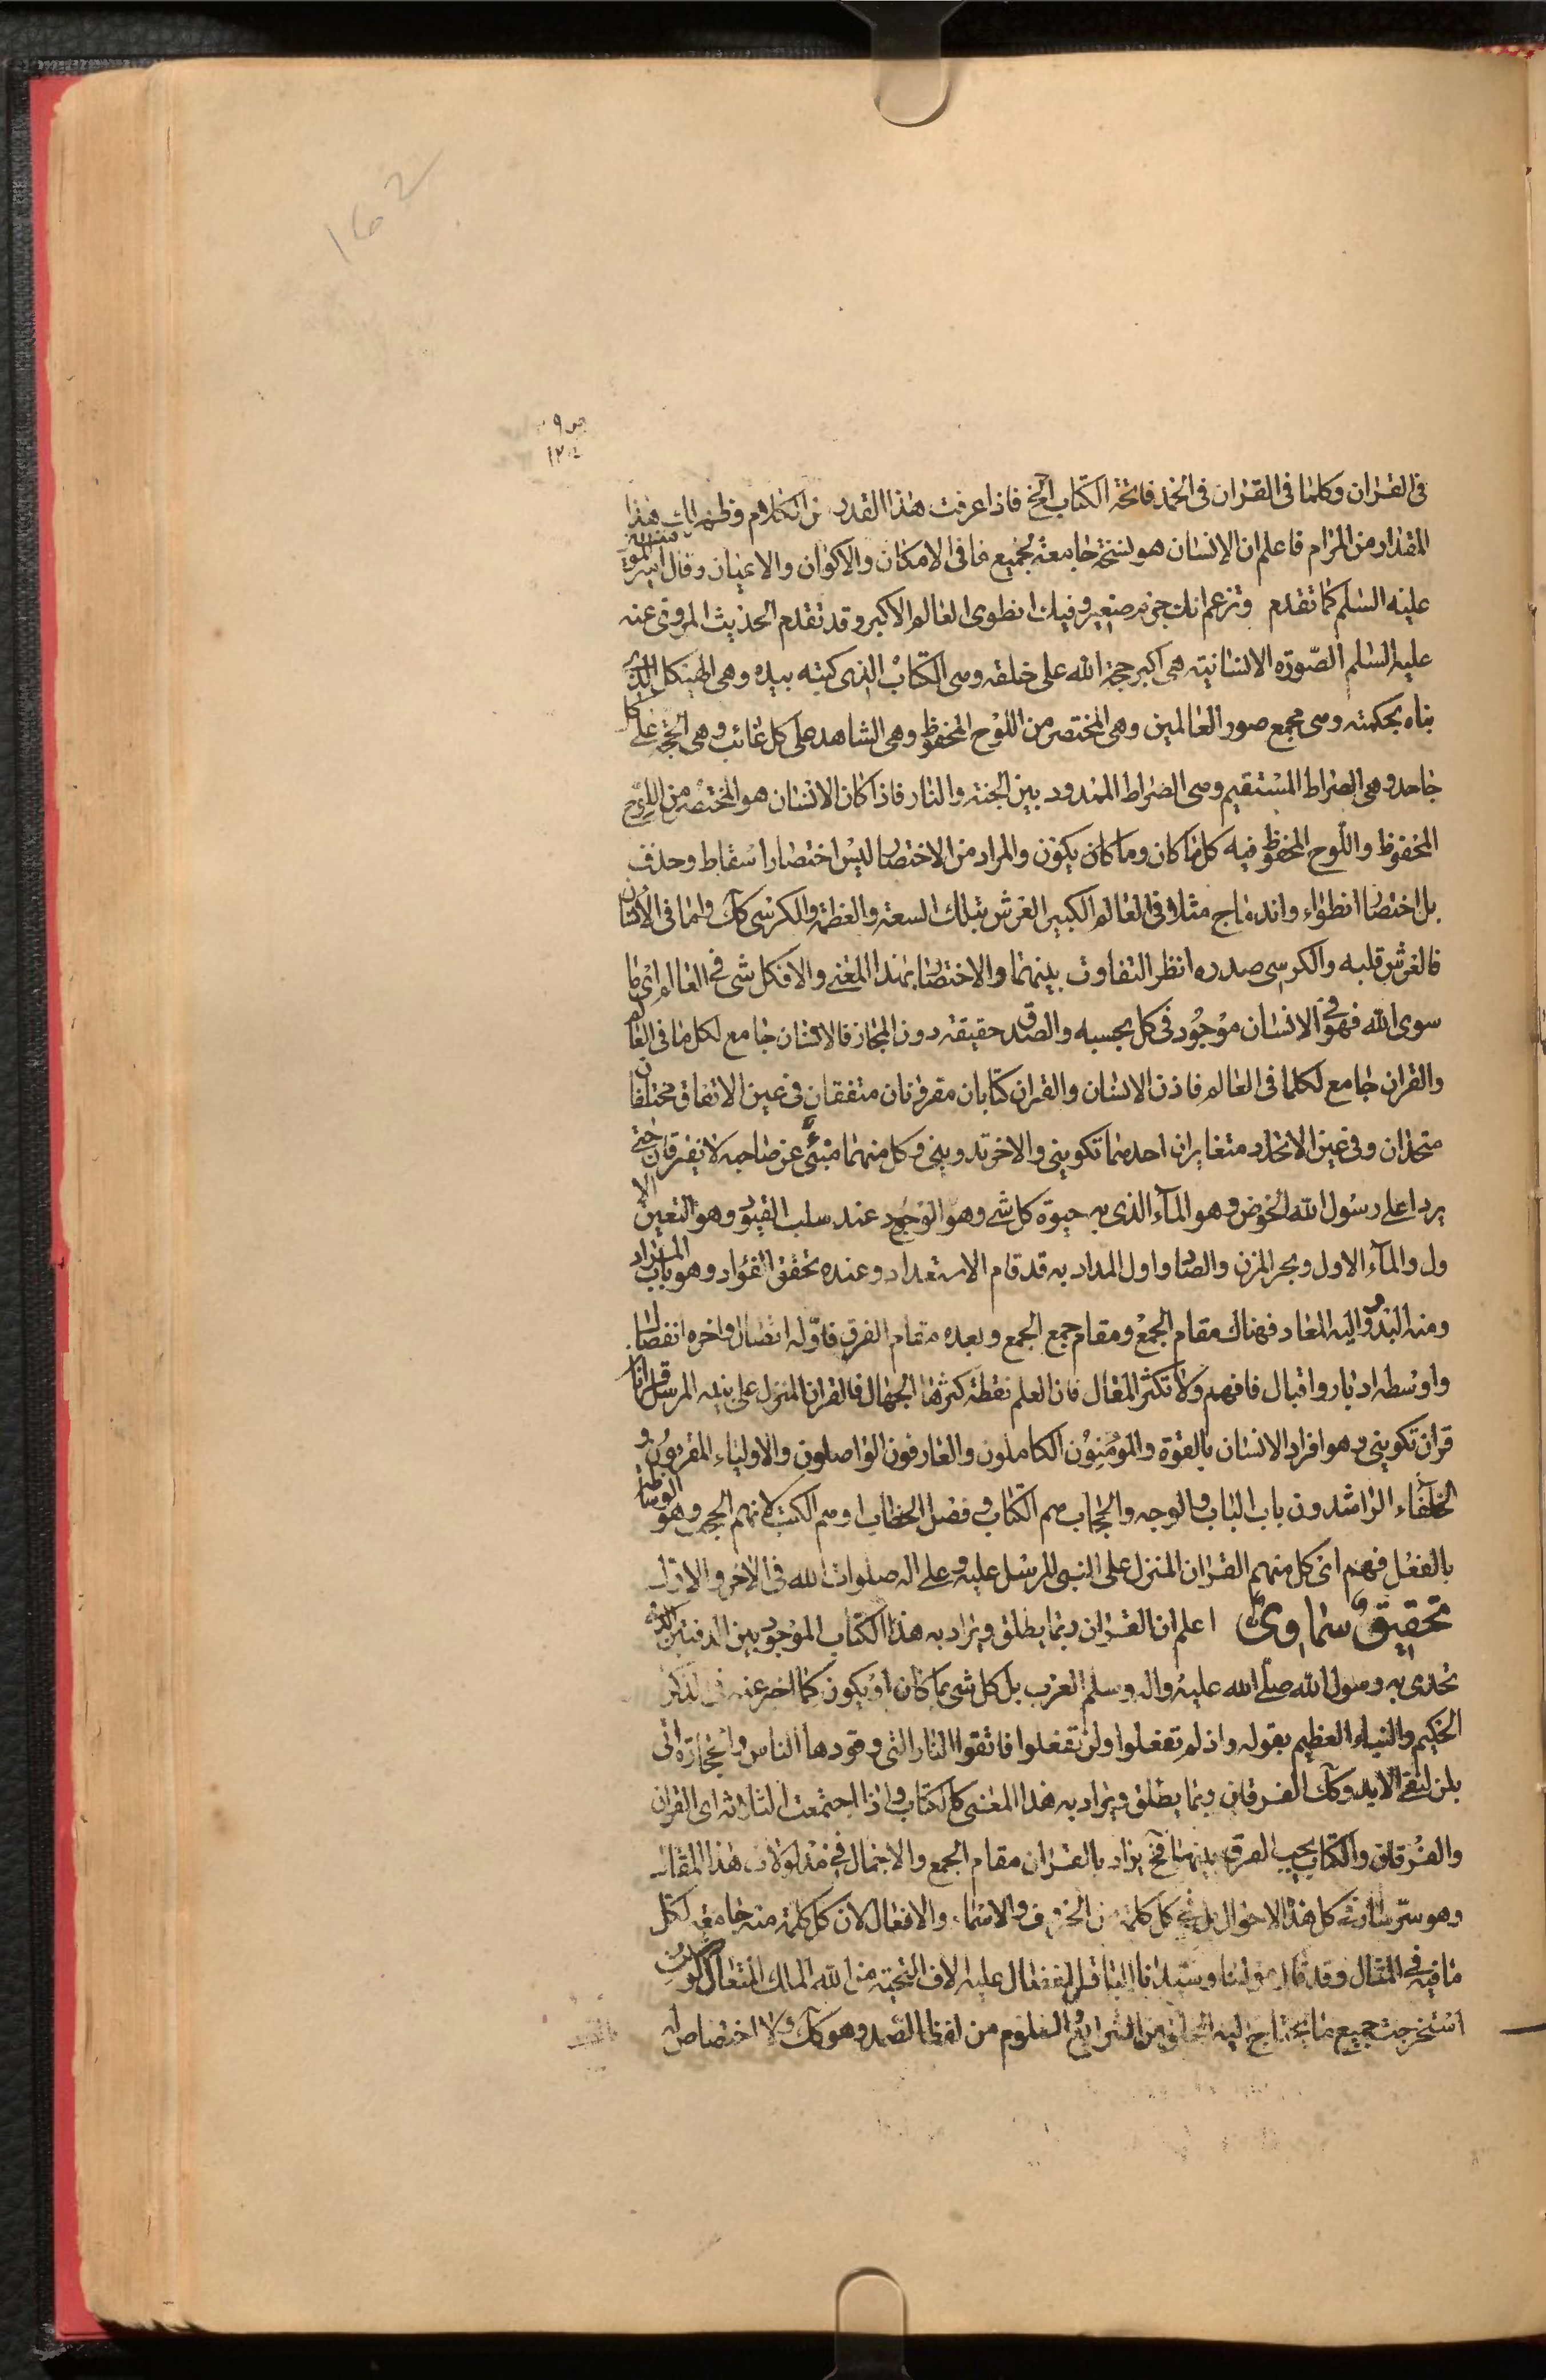 162
ص ٩
١٢٠٤
فى القران وكلما فى القران فى الحمد فاتحة الكتاب الخ فاذا عرفت هذا القدر من الكلام وظهر لك هذا
المقدار من المرام فاعلم ان الانسان هو نسخة جامعة لجميع ما فى الامكان والاكوان والاعيان وقال امير المؤمنين
عليه السلم كما تقدم وتزعم انك جرم صغير وفيك انطوى العالم الاكبر وقد تقدم الحديث المروى عنه
عليه السلم الصورة الانسانية هى اكبر حجة الله على خلقه وهى الكتاب الذى كتبه بيده وهى الهيكل الذى
بناه بحكمته وهى مجمع صور العالمين وهى المختصر من اللوح المحفوظ وهى الشاهد على كل غائب وهى الحجة على كل
جاحد وهى الصراط المستقيم وهى الصراط الممدود بين الجنة والنار فاذا كان الانسان هو المختصر من اللوح
المحفوظ واللوح المحفوظ فيه كل ما كان وما كان يكون والمراد من الاختصار ليس اختصار اسقاط وحذف
بل اختصار انطواء واندماج مثلا فى العالم الكبير العرش بتلك السعة والعظمة والكرسى كك واما فى الانسان
فالعرش قلبه والكرسى صدره انظر التفاوت بينهما والاختصار بهذا المعنى والا فكل شى فى العالم اى ما
سوى الله فهو فى الانسان موجود فى كل بحسبه والصدق حقيقة دون المجاز فالانسان جامع لكل ما فى العالم
والقران جامع لكلما فى العالم فاذن الانسان والقران كتابان مقرونان متفقان فى عين الاتفاق مختلفان
متحدان وفى عين الاتحاد متغايران احدهما تكوينى والاخر تدوينى وكل منهما منبئ عن صاحبه لا يفترقان حتى
يردا على رسول الله الحوض وهو المآء الذى به حيوة كل شى وهو الوجود عند سلب القيود وهو التعين الا
ول والمآء الاول وبحر المزن والصاد اول المداد به قد قام الاستعداد وعنده تحقق الفؤاد وهو باب المراد
ومنه البدو واليه المعاد فهناك مقام الجمع ومقام جمع الجمع وبعده مقام الفرق فاوله اتصال واخره انفصال
واوسطه ادبار واقبال فافهم ولا تكثر المقال فان العلم نقطة كثرها الجهال فالقران المنزل على نبيه المرسل قرانان
قران تكوينى وهو افراد الانسان بالقوة والمؤمنون الكاملون والعارفون الواصلون والاولياء المقربون و
الخلفاء الراشدون باب الباب والوجه والحجاب هم الكتاب وفصل الخطاب اوهم الكتب لانهم الحجج وهو الوسائط
بالفعل فهم اى كل منهم القران المنزل على النبى المرسل عليه وعلى اله صلوات الله فى الاخر والاول
تحقيق سماوى اعلم ان القران ربما يطلق ويراد به هذا الكتاب الموجود بين الدفتين الذى
تحدى به رسول الله صلى الله عليه واله وسلم العرب بل كل شى ما كان او يكون كما اخبر عنه فى الذكر
الحكيم والنباء العظيم بقوله واذ لم تفعلوا ولن تفعلوا فاتقوا النار التى وقودها الناس والحجارة اتى
بلن لنفى الابد وكك الفرقان ربما يطلق ويراد به هذا المعنى كالكتاب واذا اجتمعت الثلاثه اى القران
والفرقان والكتاب يجب الفرق بينهما فح يراد بالقران مقام الجمع والاجمال فى مدلولات هذا المقال
وهو سر سار فى كل هذا الاحوال بل فى كل كلمة من الحروف والاسماء والافعال لان كل كلمة منه جامعة لكل
ما فيه فى المثال وقد قال مولينا وسيدنا الباقر المفضال عليه الاف التحية من الله الملك المتعال لو شئت
استخرجت جميع ما يحتاج اليه الخلق من الشرايع والعلوم من لفظ الصمد وهو كك ولا اختصاص له